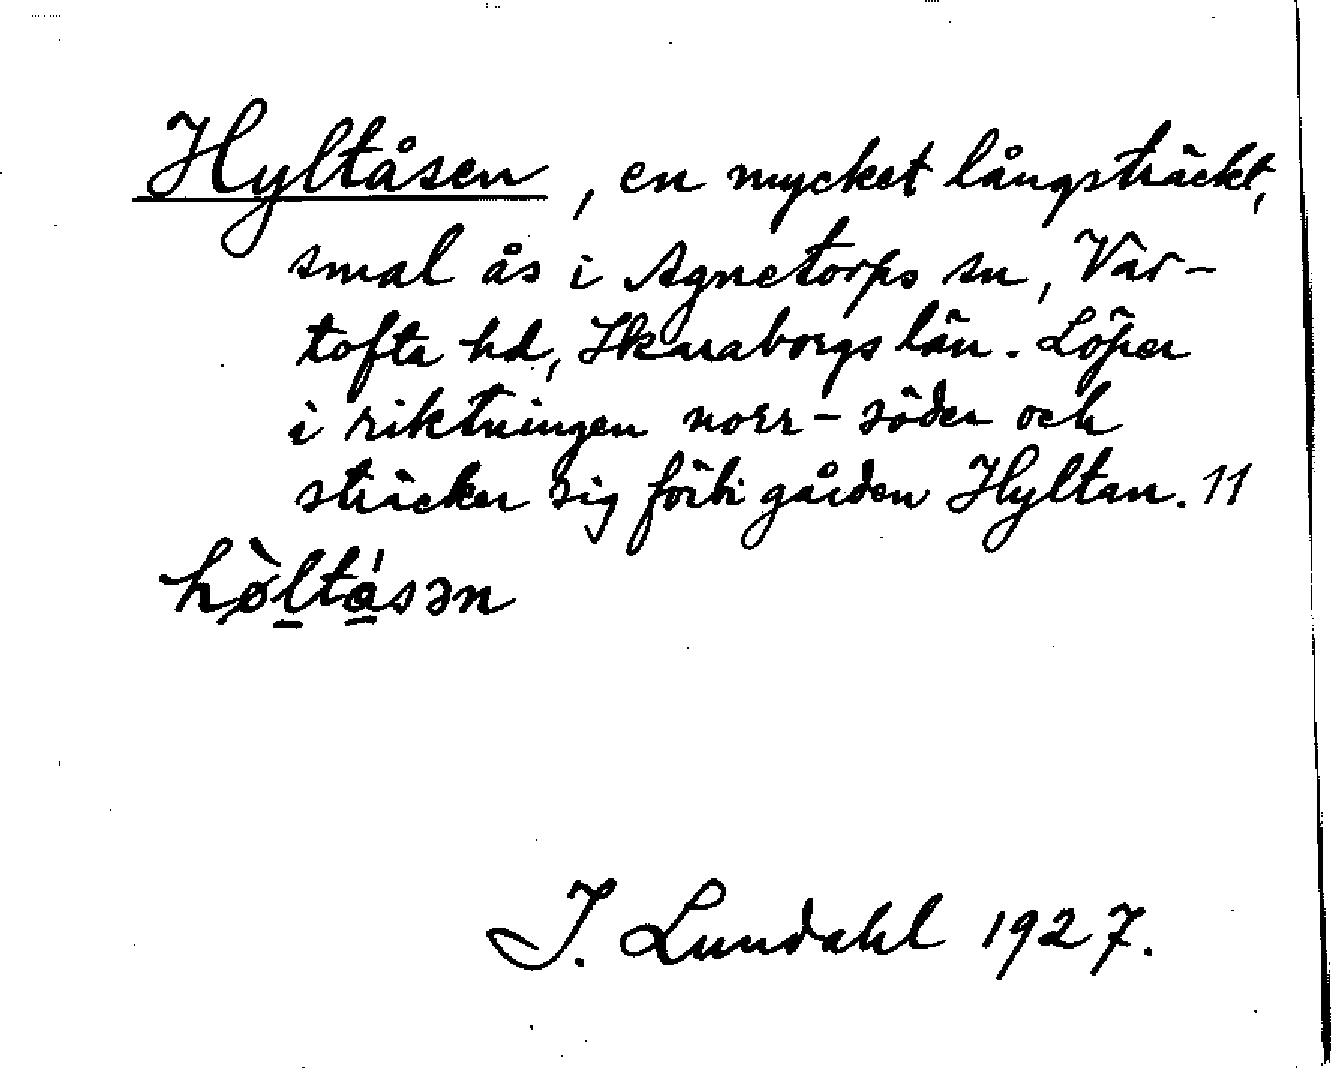 Hyltåsen, en mycket långsträckt,
smal ås i Agnetorps sn, Var-
tofta hd, Skaraborgs län. Löper
i riktningen norr - söder och
sträcker sig förbi gården Hyltan. 11
hø̀ltásən
I. Lundahl 1927.